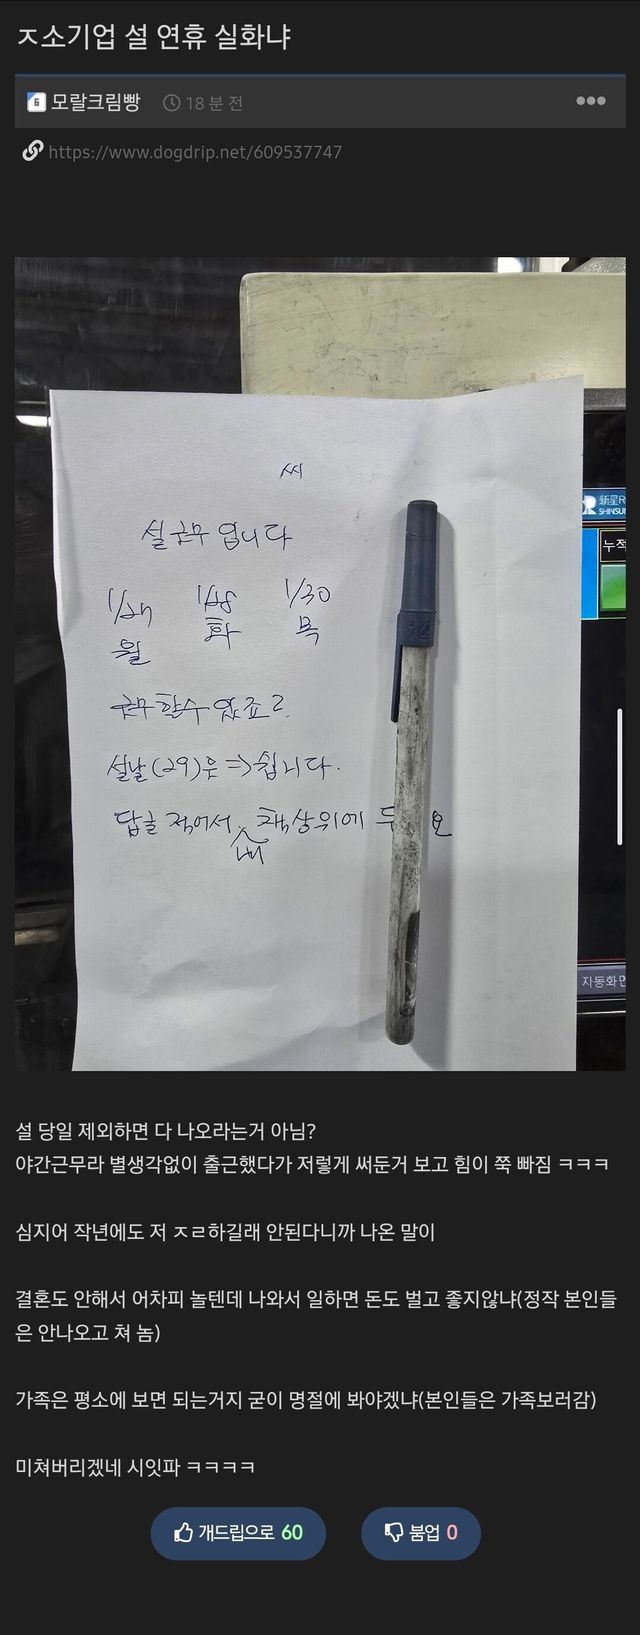 ㅈ소기업 설 연휴 실화냐
6 모랄크림빵 18 분 전
https://www.dogdrip.net/609537747
씨
설 근무 입니다
1/27 1/28 1/30
월 화 목
근무 할수 있죠?
설날(29)은 => 쉽니다.
답글 적어서 내 책상위에
新星
SHINSU
누적
자동화면
설 당일 제외하면 다 나오라는거 아님?
야간근무라 별생각없이 출근했다가 저렇게 써둔거 보고 힘이 쭉 빠짐 ㅋㅋㅋ
심지어 작년에도 저 ㅈㄹ하길래 안된다니까 나온 말이
결혼도 안해서 어차피 놀텐데 나와서 일하면 돈도 벌고 좋지않냐(정작 본인들
은 안나오고 쳐 놈)
가족은 평소에 보면 되는거지 굳이 명절에 봐야겠냐(본인들은 가족보러감)
미쳐버리겠네 시잇파 ㅋㅋㅋㅋ
개드립으로 60 붐업 0